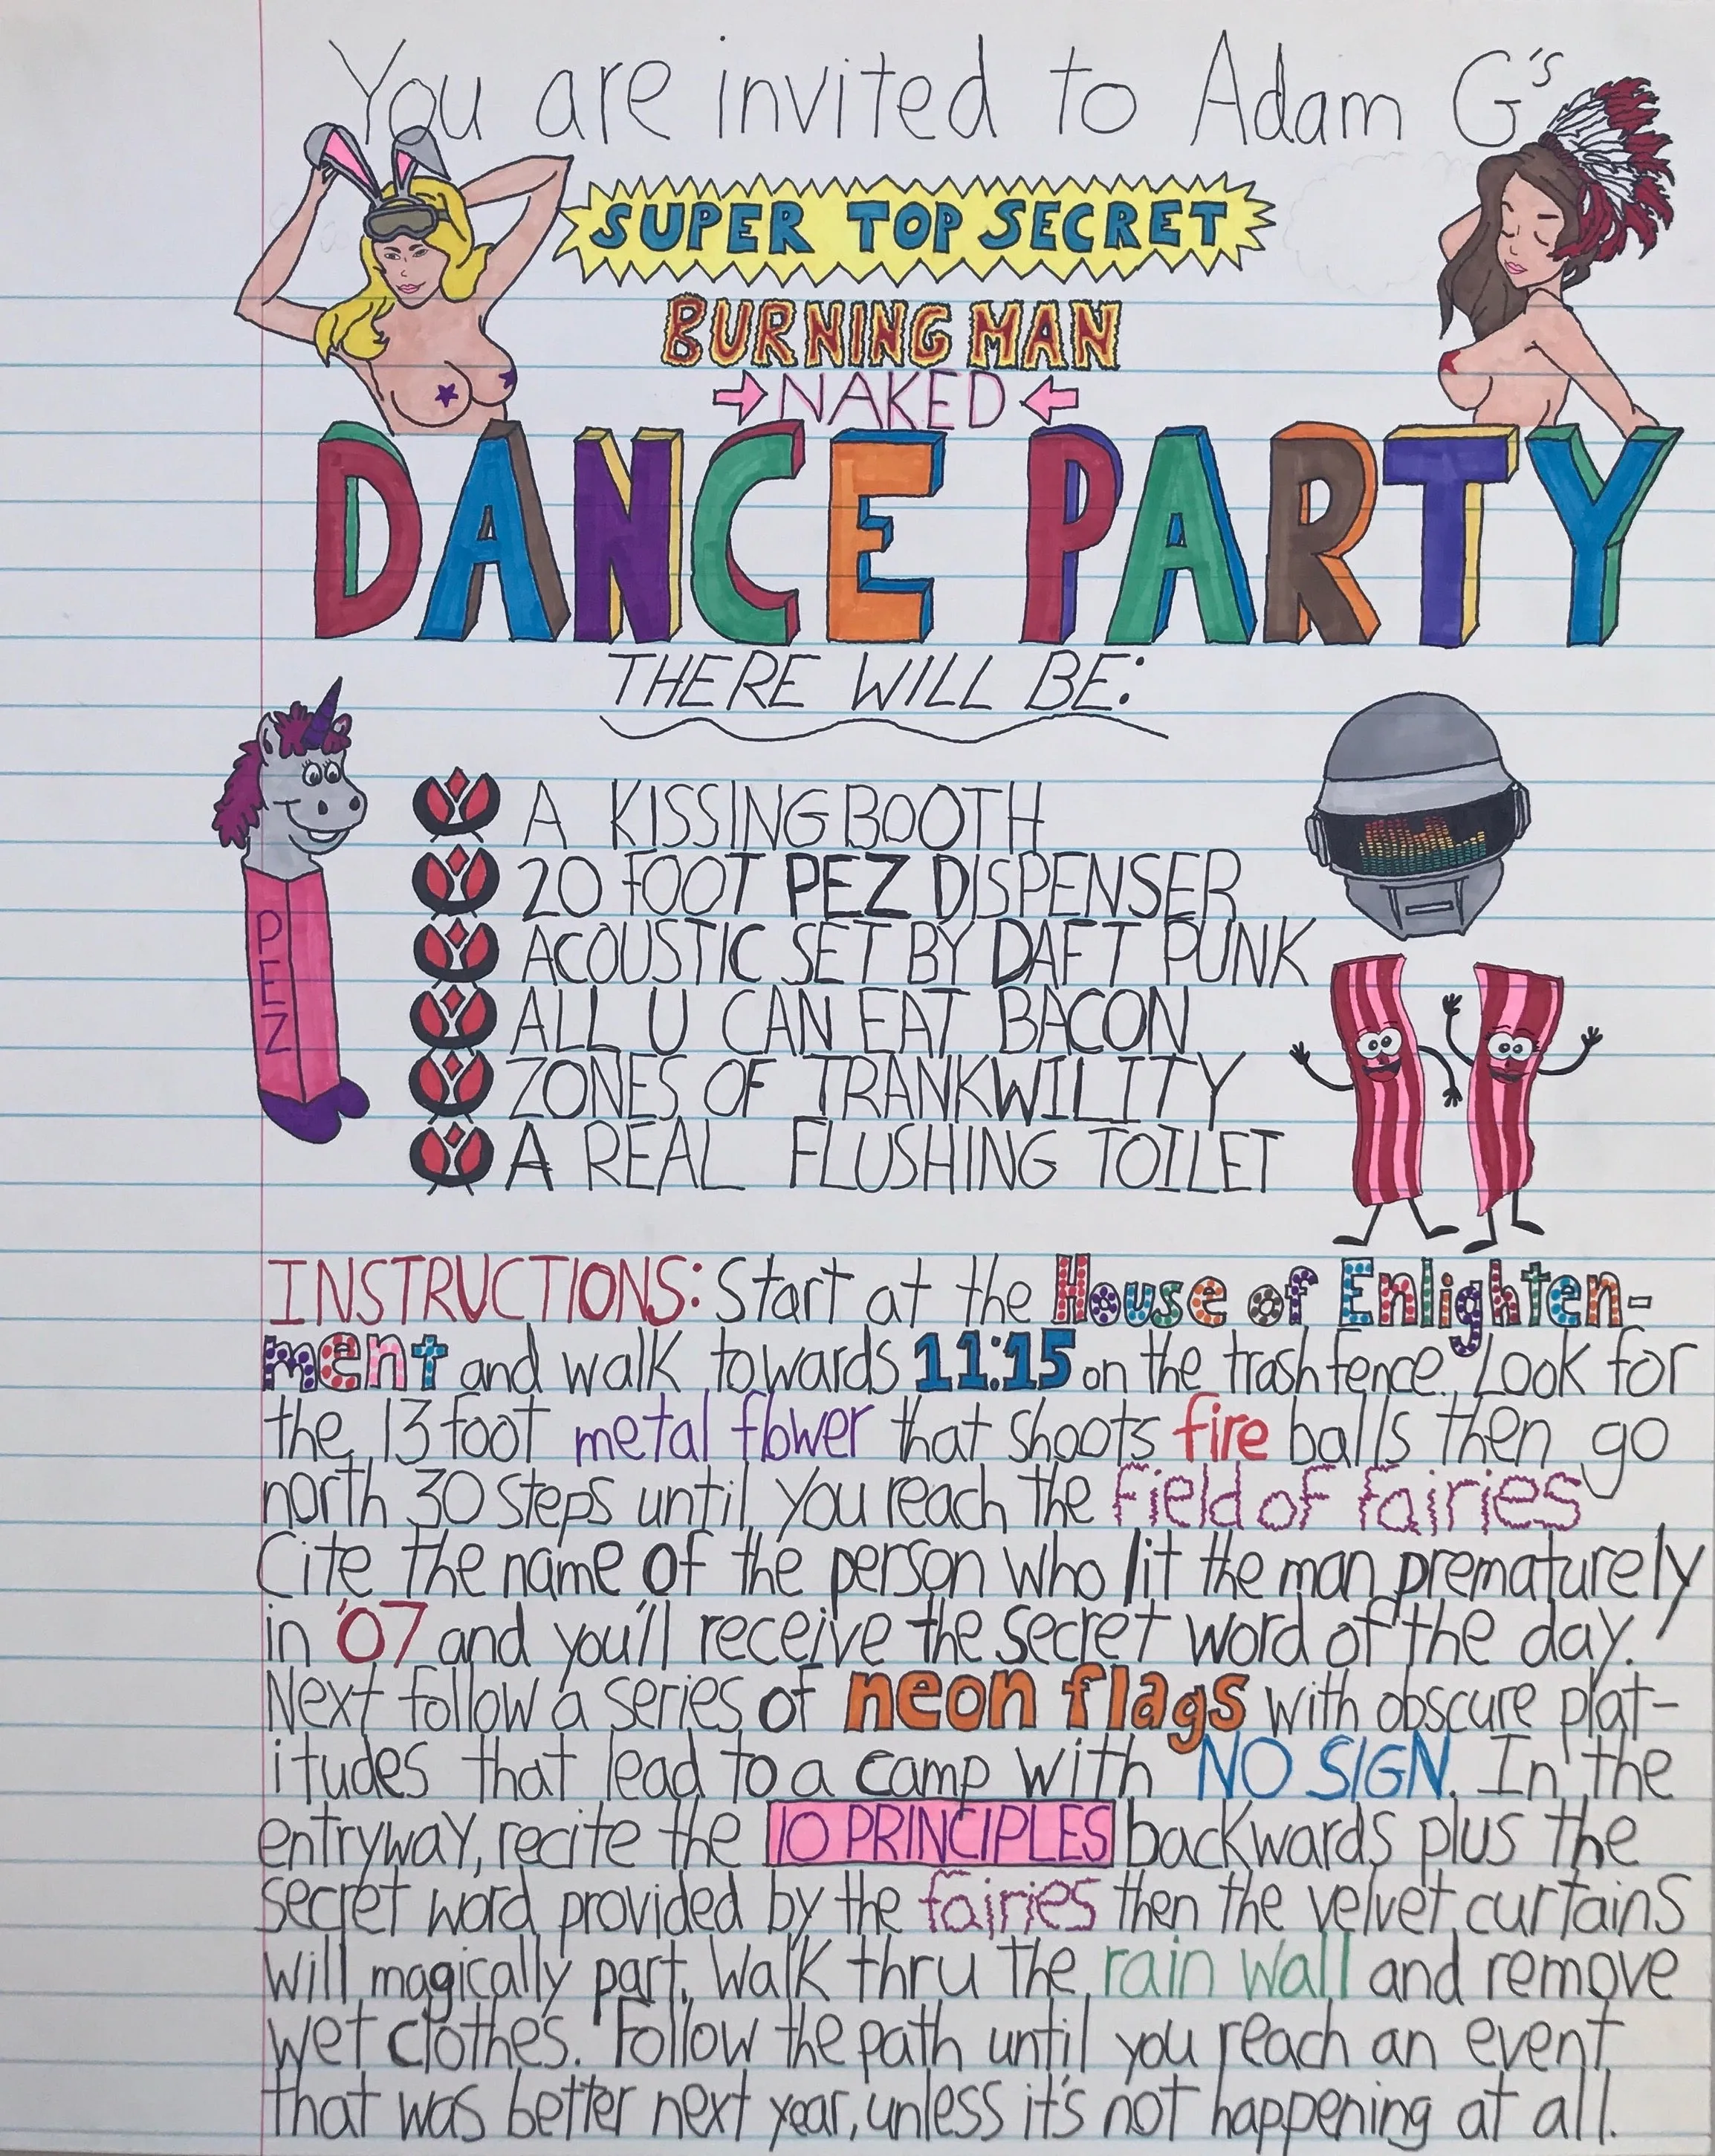 You are invited to Adam G's
SUPER TOP SECRET
BURNING MAN
NAKED
DANCE PARTY
THERE WILL BE:
A KISSING BOOTH
20 FOOT PEZ DISPENSER
ACOUSTIC SET BY DAFT PUNK
ALL U CAN EAT BACON
ZONES OF TRANKWILITY
A REAL FLUSHING TOILET
PEZ
INSTRUCTIONS: Start at the House of Enlighten-
ment and walk towards 11:15 on the trash fence. Look for
the 13 foot metal flower that shoots fire balls then go
north 30 steps until you reach the field of fairies
Cite the name of the person who lit the man prematurely
in '07 and you'll receive the secret word of the day.
Next follow a series of neon flags with obscure plat-
itudes that lead to a camp with NO SIGN. In the
entryway, recite the 10 PRINCIPLES backwards plus the
secret word provided by the fairies then the velvet curtains
will magically part. Walk thru the rain wall and remove
wet clothes. Follow the path until you reach an event
that was better next year, unless it's not happening at all.